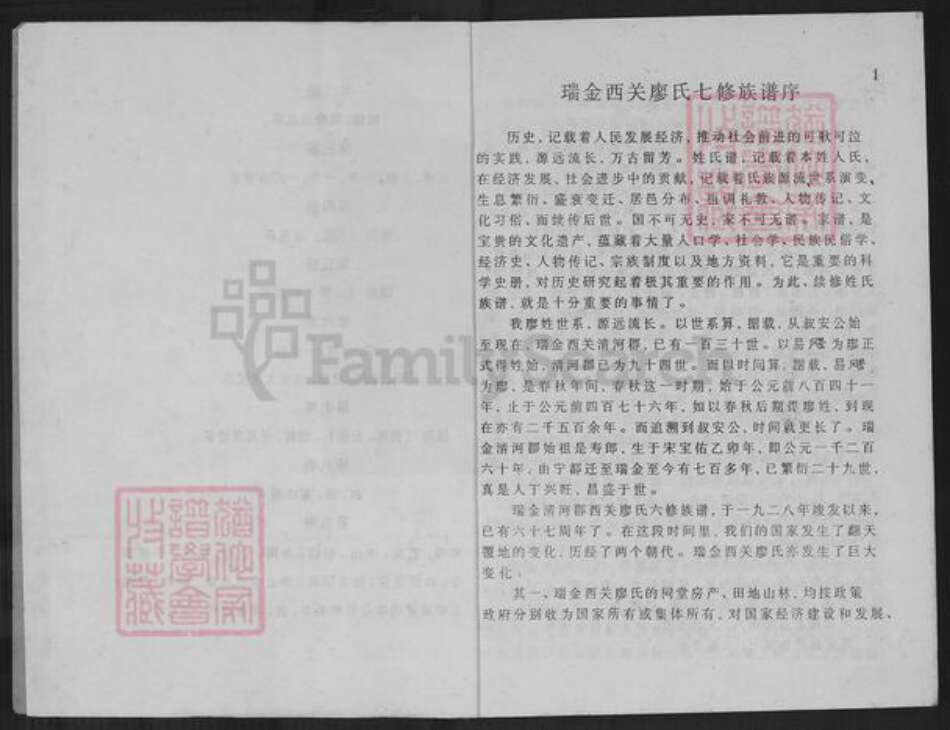 1
瑞金西关廖氏七修族谱序
历史,记载着人民发展经济,推动社会前进的可歌可泣
的实践,源远流长,万古留芳。姓氏谱,记载着本姓人氏,
在经济发展、社会进步中的贡献,记载着氏族源流世系演变、
生息繁衍、盛衰变迁、居邑分布、祖训礼教、人物传记、文
化习俗,而续传后世。国不可无史,家不可无谱。家谱,是
宝贵的文化遗产,蕴藏着大量人口学、社会学、民族民俗学、
经济史、人物传记、宗族制度以及地方资料,它是重要的科
学史册,对历史研究起着极其重要的作用。为此、续修姓氏
族谱、就是十分重要的事情了。
我廖姓世系,源远流长。以世系算,据载,从叔安公始
至现在,瑞金西关清河郡,已有一百三十世。以易飂为廖正
式得姓始,清河郡已为九十四世。而以时间算,据载、易飂
为廖,是春秋年间,春秋这一时期,始于公元前八百四十一
年,止于公元前四百七十六年,如以春秋后期得廖姓,到现
在亦有二千五百余年。而追溯到叔安公,时间就更长了。瑞
金清河郡始祖是寿郎,生于宋宝佑乙卯年,即公元一千二百
六十年,由宁都迁至瑞金至今有七百多年,已繁衍二十九世,
真是人丁兴旺、昌盛于世。
瑞金清河郡西关廖氏六修族谱,于一九二八年竣发以来,
已有六十七周年了。在这段时间里,我们的国家发生了翻天
覆地的变化,历经了两个朝代。瑞金西关廖氏亦发生了巨大
变化:
其一、瑞金西关廖氏的祠堂房产、田地山林、均按政策
政府分别收为国家所有或集体所有,对国家经济建设和发展、
FamilySearch